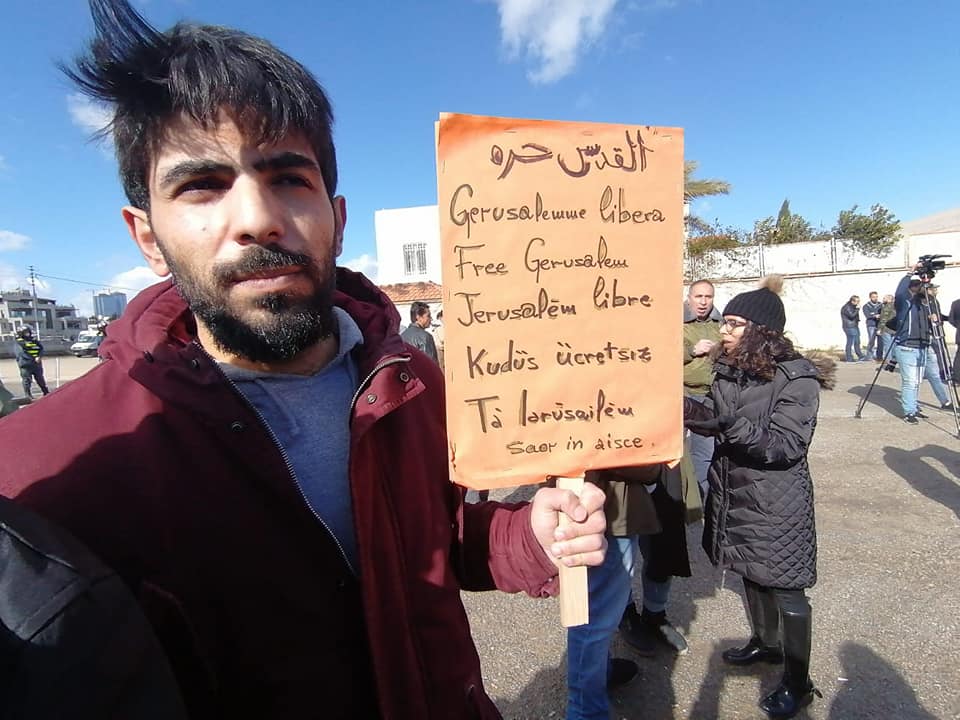 القدس حره
Gerusalemme libera
Free Gerusalem
Jerusalem libre
Kudüs ücretsiz
Tà Iarúsailém
saor in aisce.